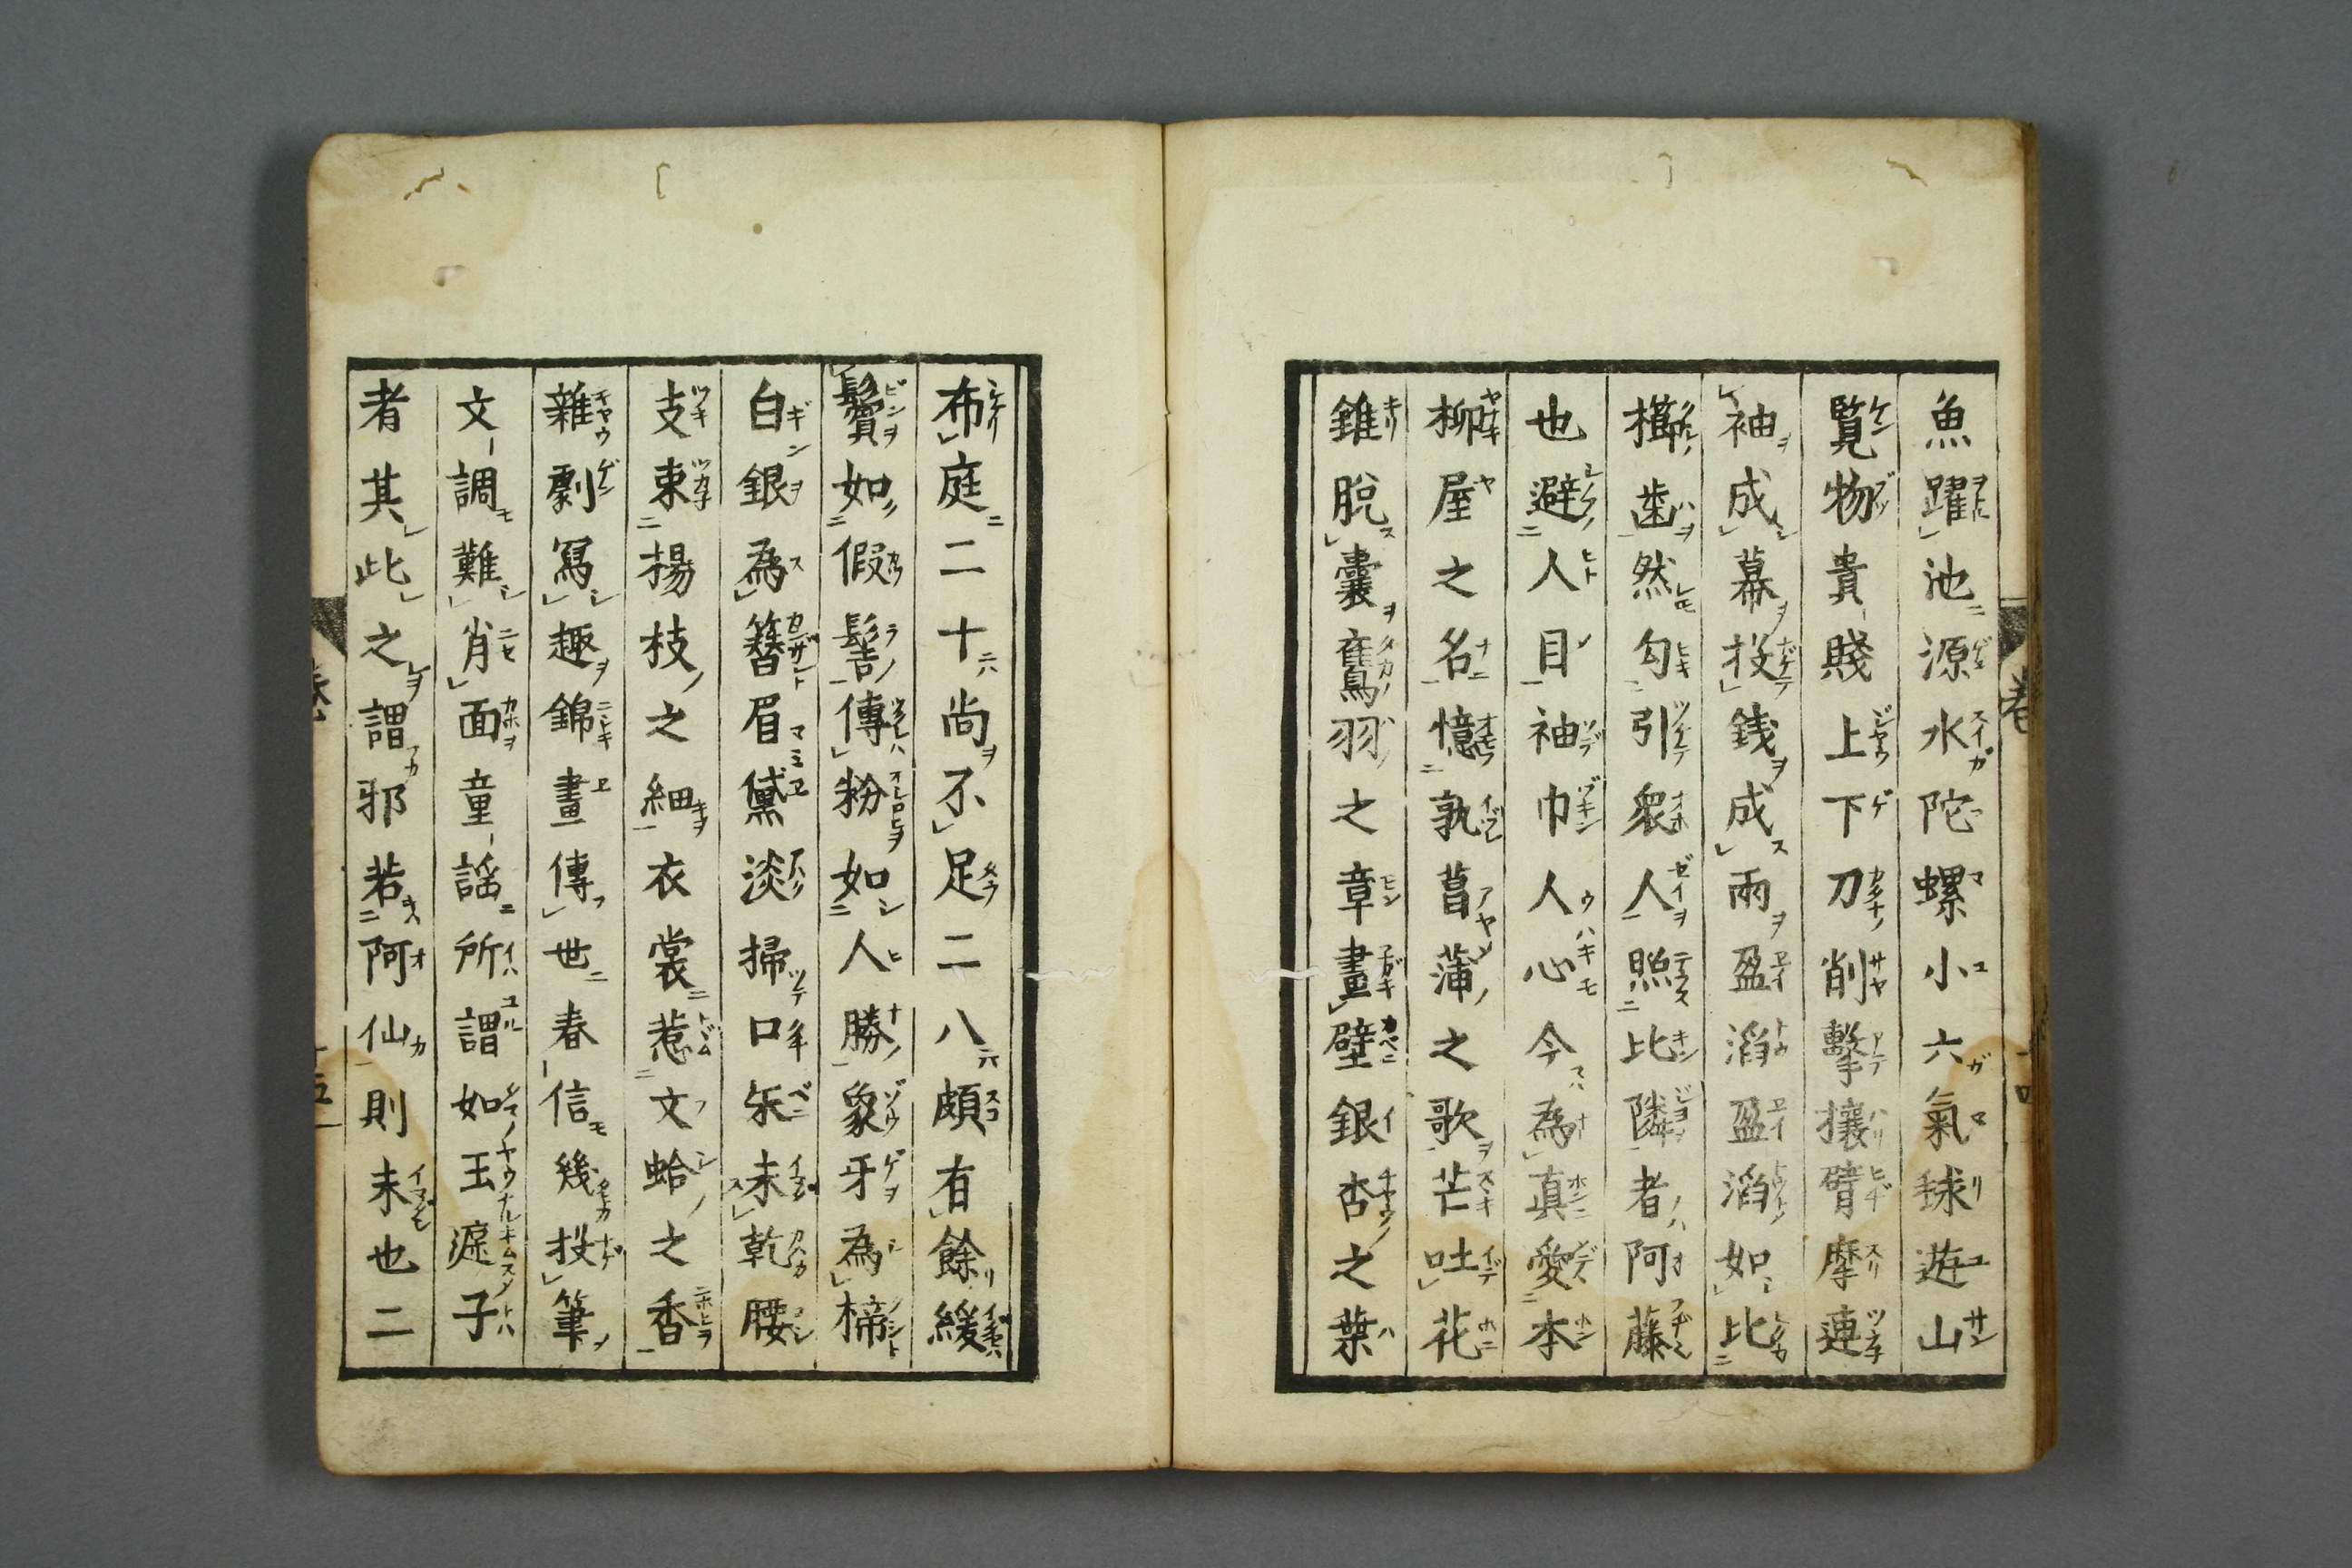 魚躍池源水陀螺小六氣毬遊山
覧物貴賤上下刀削擊攘臂摩連
袖成幕投銭成雨盈滔盈滔如比
櫛歯然勾引衆人照比隣者阿藤
也避人目袖巾人心今為真愛本
柳屋之名憶孰菖蒲之歌芒吐花
錐脫囊鷹羽之章畫壁銀杏之葉
布庭二十尚不足二八頗有餘緩
鬢如假髻傳粉如人勝象牙為楴
白銀為簪眉黛淡掃口朱未乾腰
支束揚枝之細衣裳惹文蛤之香
雜劇寫趣錦畫傳世春信幾投筆
文調難肖面童謡所謂如玉淚子
者其此之謂邪若阿仙則未也二